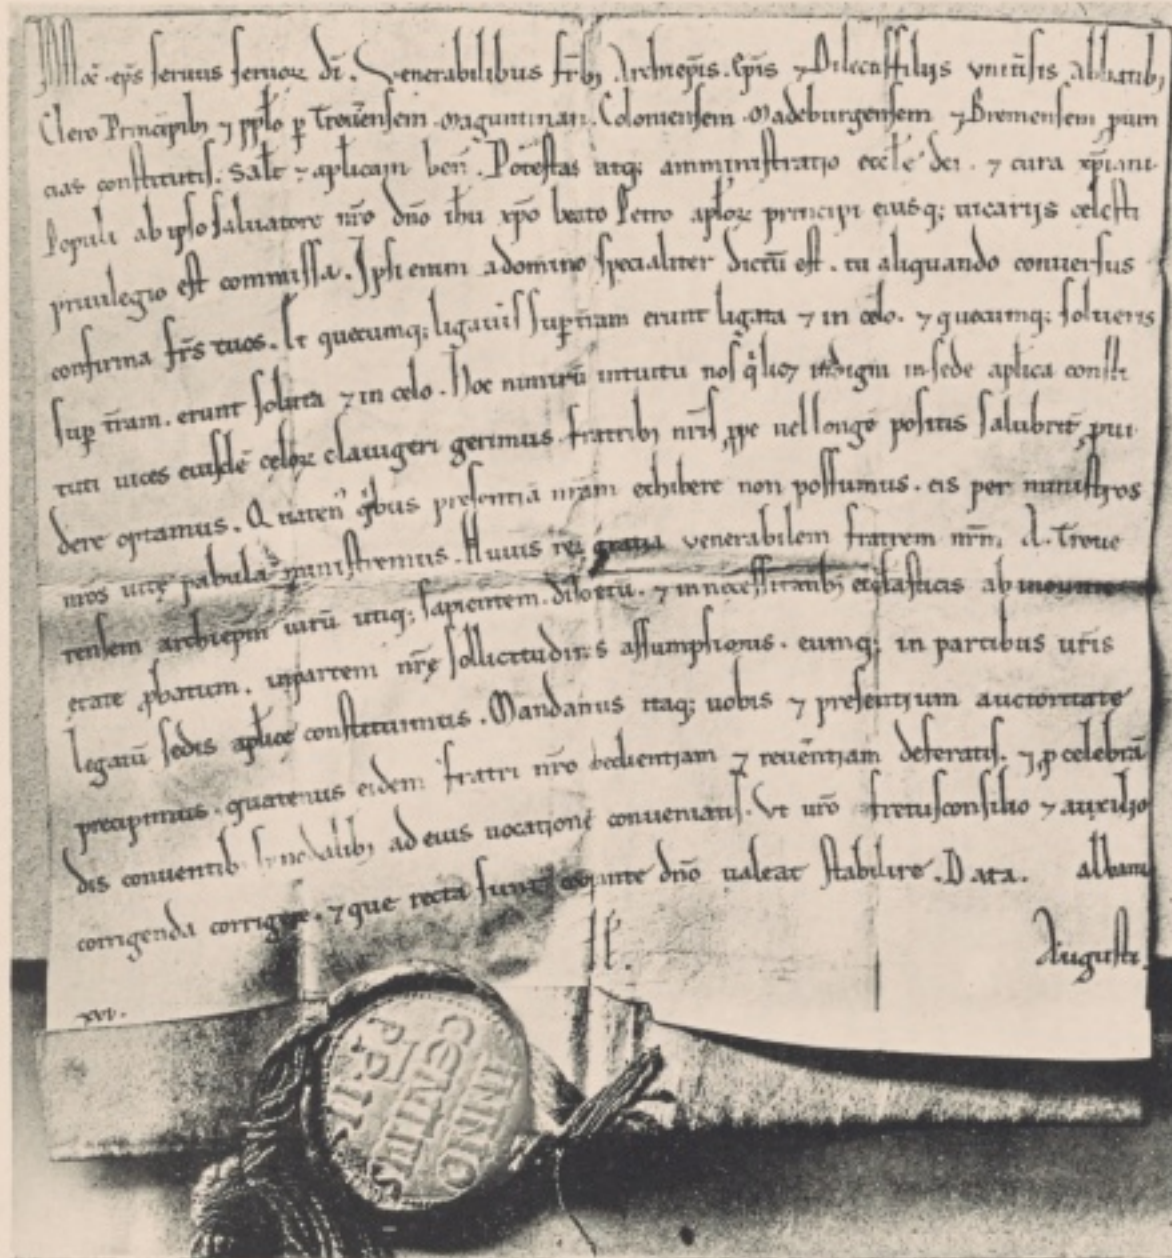 Innoc̄ · ep̄s seruus seruoꝝ dī . Venerabilibus fr̄ibꝫ . Archiep̄is . Ep̄is ⁊ Dilectis filijs uniūsis abbatibꝫ
Clero Principibꝫ ⁊ pp̄lo ꝑ Treūensem . Maguntinam . Coloniensem . Madeburgensem ⁊ Bremensem ꝓuin
cias constitutis . Salt̄ ⁊ ap̄licam ben̄ . Potestas atqꝫ amministratio eccl̄e dei . ⁊ cura xp̄iani
Populi ab ipso saluatore nr̄o dn̄o ih̄u xp̄o beato Petro ap̄loꝝ principi eiusqꝫ uicarijs celesti
priuilegio est commissa . Ipsi enim a domino specialiter dictū est . tu aliquando conuersus
confirma fr̄s tuos . Et quecumqꝫ ligaueris sup̄ t̄ram erunt ligata ⁊ in celo . ⁊ quecumqꝫ solueris
sup̄ t̄ram . erunt soluta ⁊ in celo . Hoc nimirū intuitu nos indigni in sede ap̄lica consti
tuti uices eiusdē celoꝝ clauigeri gerimus . fratribꝫ nr̄is ꝓpe uel longe positis salubrit̄ ꝓui
dere optamus . Quaten̄ qͥbus presentiā nr̄am exhibere non possumus . eis per ministros
nr̄os uite pabula ministremus . Huius rei gratia venerabilem fratrem nr̄m . A . Treue
rensem archiep̄m uirū utiqꝫ sapientem . discretū . ⁊ in necessitatibꝫ ecclesiasticis ab
etate ꝓbatum . in partem nr̄e sollicitudinis assumpsimus . eumqꝫ in partibus ur̄is
legatū sedis ap̄lice constituimus . Mandamus itaqꝫ uobis ⁊ presentium auctoritate
precipimus . quatenus eidem fratri nr̄o obedientiam ⁊ reuerentiam deferatis . ⁊ ꝓ celebrā
dis conuentibꝫ synodalibꝫ ad eius uocationē conueniatis . Vt ur̄o fretus consilio ⁊ auxilio
corrigenda corrigere . ⁊ que recta sunt dn̄o ualeat stabilire . Data . albani
II . Augusti .
xvi .
INNO
CENTIUS
PP II